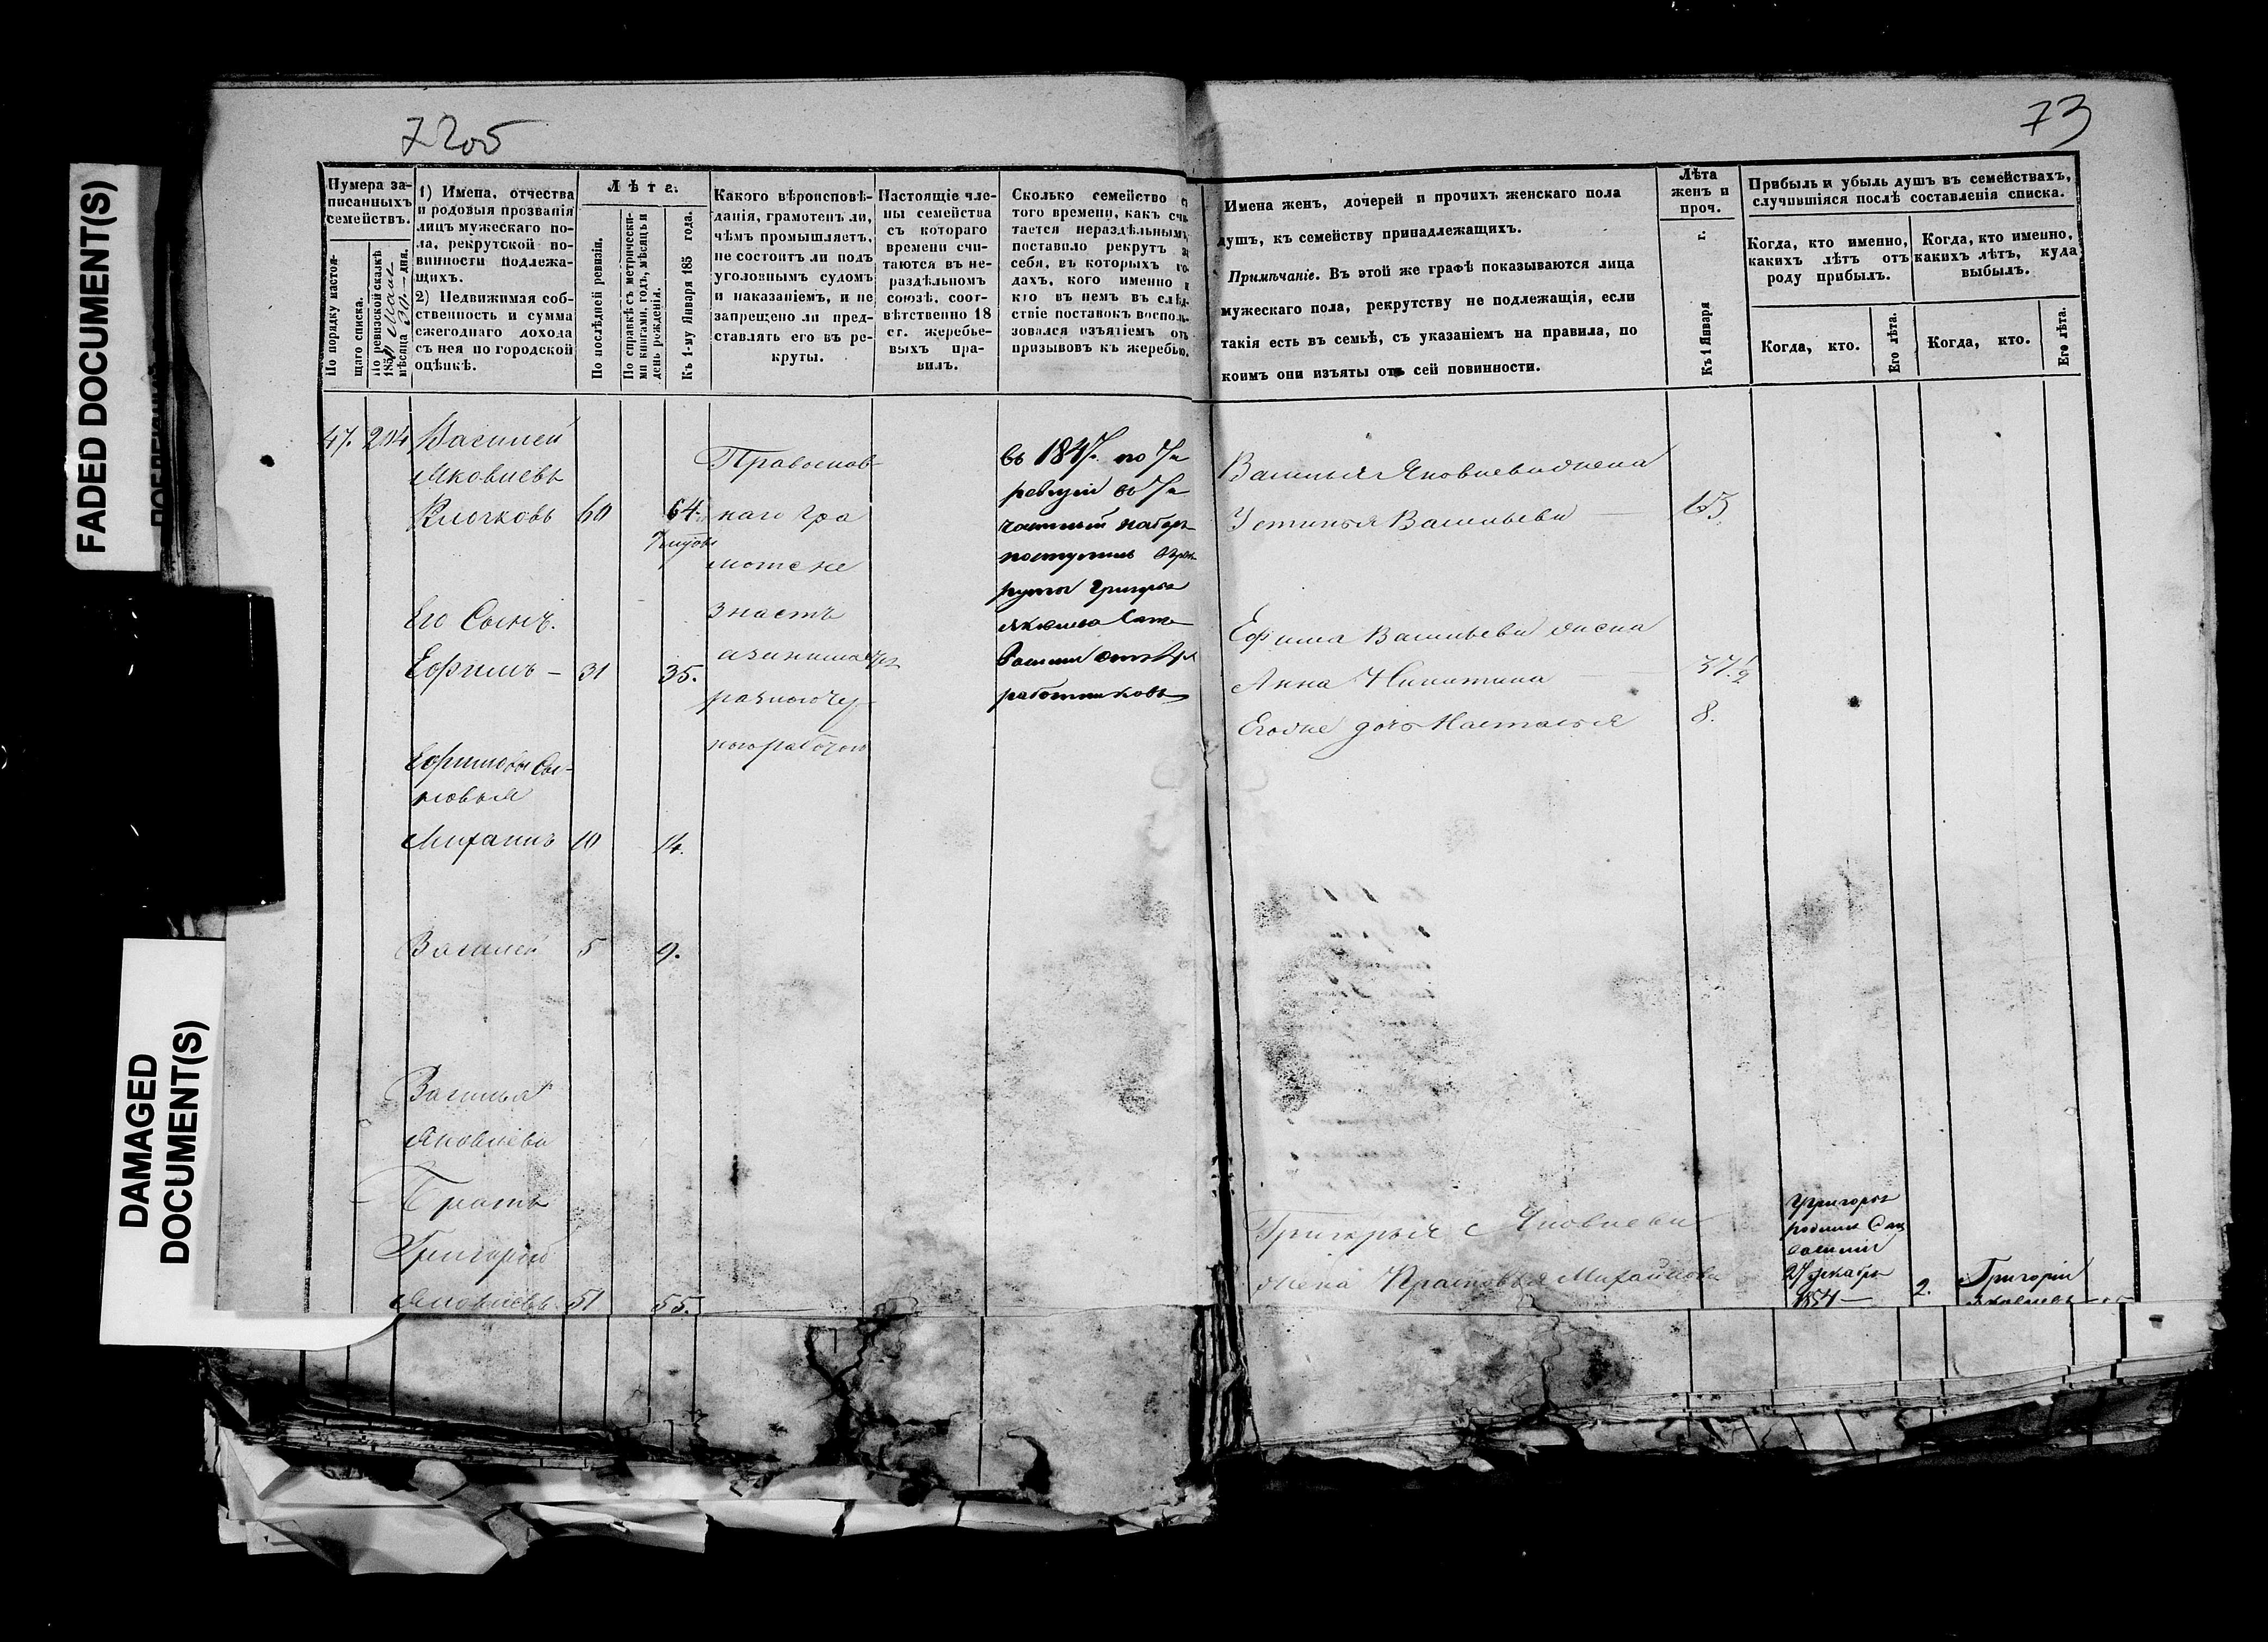 FADED DOCUMENT(S)
DAMAGED
DOCUMENT(S)
73
Нумера за-
писанныхъ
семействъ.
По порядку настоя-
щаго списка.
По ревизской сказкѣ
мѣсяца дня.
1) Имена, отчества
и родовыя прозванія
лицъ мужескаго по-
ла, рекрутской по-
винности подлежа-
щихъ.
2) Недвижимая соб-
ственность и сумма
ежегоднаго дохода
съ нея по городской
оцѣнкѣ.
Лѣта:
По послѣдней ревизіи.
По справкѣ съ метрически-
ми книгами, годъ, мѣсяцъ и
день рожденія.
Къ 1-му Января 185 года.
Какого вѣроисповѣ-
данія, грамотенъ ли,
чѣмъ промышляетъ,
не состоитъ ли подъ
уголовнымъ судомъ
и наказаніемъ, и не
запрещено ли пред-
ставлять его въ ре-
круты.
Настоящіе чле-
ны семейства
съ котораго
времени счи-
таются въ не-
раздѣльномъ
союзѣ, соот-
вѣтственно 18
ст. жеребье-
выхъ пра-
вилъ.
Сколько семейство съ
того времени, какъ счи-
тается нераздѣльнымъ,
поставило рекрутъ за
себя, въ которыхъ го-
дахъ, кого именно и
кто въ немъ въ слѣд-
ствіе поставокъ восполь-
зовался изъятіемъ отъ
призывовъ къ жеребью.
Имена женъ, дочерей и прочихъ женскаго пола
душъ, къ семейству принадлежащихъ.
Примѣчаніе. Въ этой же графѣ показываются лица
мужескаго пола, рекрутству не подлежащія, если
такія есть въ семьѣ, съ указаніемъ на правила, по
коимъ они изъяты отъ сей повинности.
Лѣта
женъ и
проч.
Къ 1 Января г.
Прибыль и убыль душъ въ семействахъ,
случившіяся послѣ составленія списка.
Когда, кто именно,
какихъ лѣтъ отъ
роду прибылъ.
Когда, кто. Его лѣта.
Когда, кто именно,
какихъ лѣтъ, куда
выбылъ.
Когда, кто. Его лѣта.
47. 204 Василей
Яковлевъ
Клочковъ 60 64.
Его Сынъ.
Ефимъ — 31 35.
Ефимовы Сы-
новья
Михаилъ 10 14.
Василей 5 9.
Василья
Яковлева
Братъ
Григорей
Яковлевъ 51 55.
Православ-
наго гра
моте не
знаетъ
въ 1847. по 7й
ревизіи въ 7й
частный наборъ
поступилъ
Григорья
Яковлева
работниковъ
Василья Яковлева жена
Устинья Васильева — 63.
Ефима Васильева жена
Анна Никитина — 37.½
Его же дочь Настасья 8.
Григорья Яковлева
жена Прасковья Михайлова
Григорья
родился
27 декабря
1854 — 2.
Григорій
Яковлевъ